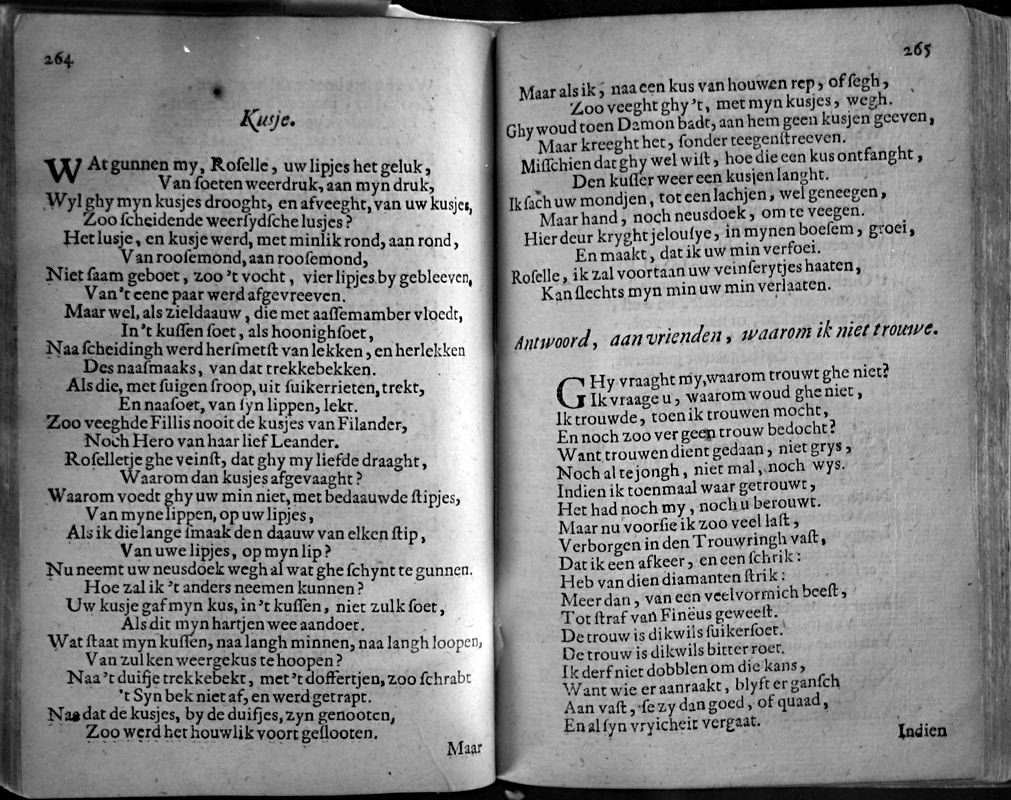 264
Kusje.
WAt gunnen my, Roſelle, uw lipjes het geluk,
Van ſoeten weerdruk, aan myn druk,
Wyl ghy myn kusjes drooght, en afveeght, van uw kusjes,
Zoo ſcheidende weerſydſche lusjes?
Het lusje, en kusje werd, met minlik rond, aan rond,
Van rooſemond, aan rooſemond,
Niet ſaam geboet, zoo 't vocht, vier lipjes by gebleeven,
Van 't eene paar werd afgevreeven.
Maar wel, als zieldaauw, die met aaſſemamber vloedt,
In 't kuſſen ſoet, als hoonighſoet,
Naa ſcheidingh werd herſmetſt van lekken, en herlekken
Des naaſmaaks, van dat trekkebekken.
Als die, met ſuigen ſroop, uit ſuikerrieten, trekt,
En naaſoet, van ſyn lippen, lekt.
Zoo veeghde Fillis nooit de kusjes van Filander,
Noch Hero van haar lief Leander.
Roſelletje ghe veinſt, dat ghy my liefde draaght,
Waarom dan kusjes afgevaaght?
Waarom voedt ghy uw min niet, met bedaauwde ſtipjes,
Van myne lippen, op uw lipjes,
Als ik die lange ſmaak den daauw van elken ſtip,
Van uwe lipjes, op myn lip?
Nu neemt uw neusdoek wegh al wat ghe ſchynt te gunnen.
Hoe zal ik 't anders neemen kunnen?
Uw kusje gaf myn kus, in 't kuſſen, niet zulk ſoet,
Als dit myn hartjen wee aandoet.
Wat ſtaat myn kuſſen, naa langh minnen, naa langh loopen,
Van zulken weergekus te hoopen?
Naa 't duifje trekkebekt, met 't doffertjen, zoo ſchrabt
't Syn bek niet af, en werd getrapt.
Naa dat de kusjes, by de duifjes, zyn genooten,
Zoo werd het houwlik voort geſlooten.
Maar
265
Maar als ik, naa een kus van houwen rep, of ſegh,
Zoo veeght ghy 't, met myn kusjes, wegh.
Ghy woud toen Damon badt, aan hem geen kusjen geeven,
Maar kreeght het, ſonder teegenſtreeven.
Miſſchien dat ghy wel wiſt, hoe die een kus ontfanght,
Den kuſſer weer een kusjen langht.
Ik ſach uw mondjen, tot een lachjen, wel geneegen,
Maar hand, noch neusdoek, om te veegen.
Hier deur kryght jelouſye, in mynen boeſem, groei,
En maakt, dat ik uw min verfoei.
Roſelle, ik zal voortaan uw veinſerytjes haaten,
Kan ſlechts myn min uw min verlaaten.
Antwoord, aan vrienden, waarom ik niet trouwe.
GHy vraaght my, waarom trouwt ghe niet?
Ik vraage u, waarom woud ghe niet,
Ik trouwde, toen ik trouwen mocht,
En noch zoo ver geen trouw bedocht?
Want trouwen dient gedaan, niet grys,
Noch al te jongh, niet mal, noch wys.
Indien ik toenmaal waar getrouwt,
Het had noch my, noch u berouwt.
Maar nu voorſie ik zoo veel laſt,
Verborgen in den Trouwringh vaſt,
Dat ik een afkeer, en een ſchrik:
Heb van dien diamanten ſtrik:
Meer dan, van een veelvormich beeſt,
Tot ſtraf van Finëus geweeſt.
De trouw is dikwils ſuikerſoet.
De trouw is dikwils bitter roet.
Ik derf niet dobblen om die kans,
Want wie er aanraakt, blyft er ganſch
Aan vaſt, ſe zy dan goed, of quaad,
En al ſyn vryicheit vergaat.
Indien